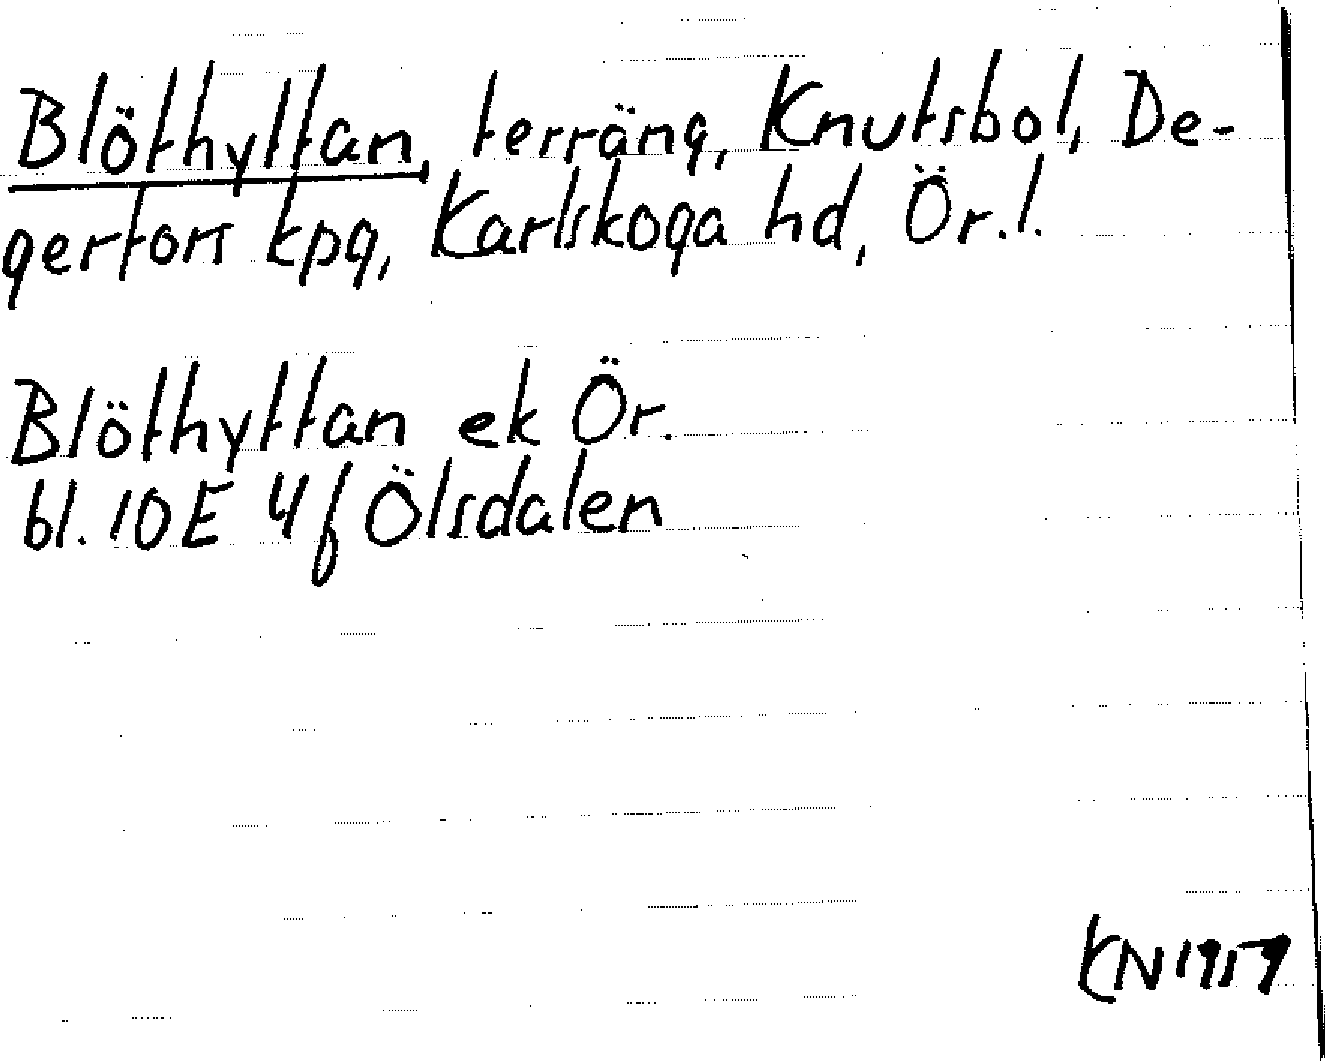 Blöthyttan, terräng, Knutsbol, De-
gerfors kpg, Karlskoga hd, Ör.l.
Blöthyttan ek Ör.
bl. 10E 4f Ölsdalen
KN 1959